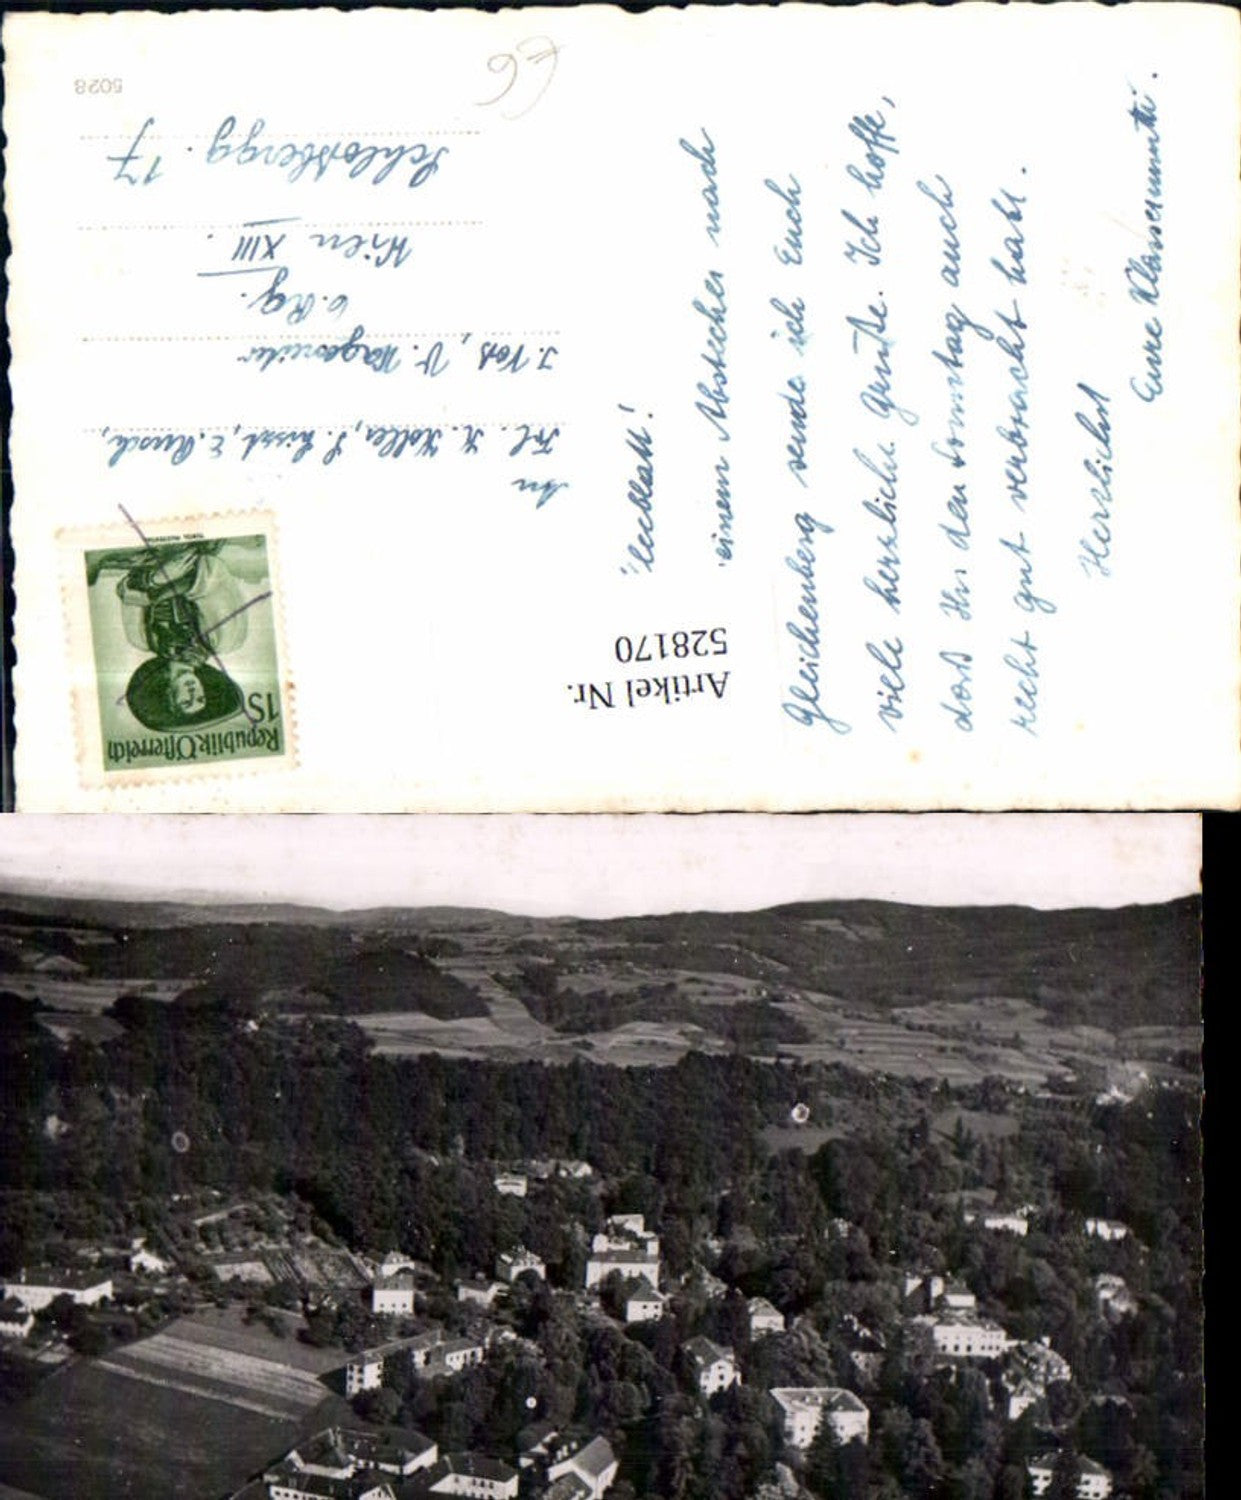 Kleeblatt!
einem Abstecher nach
Gleichenberg sende ich Euch
viele herzliche Grüße. Ich hoffe,
daß Ihr den Sonntag auch
recht gut verbracht habt.
Herzlichst
Eure Klassenmutti.
Republik Österreich
1S
An
Frl. K. Koller,
J. Voß, V.
6. Rg.
Wien XIII.
Schloßbergg. 17
5028
€6
Artikel Nr.
528170